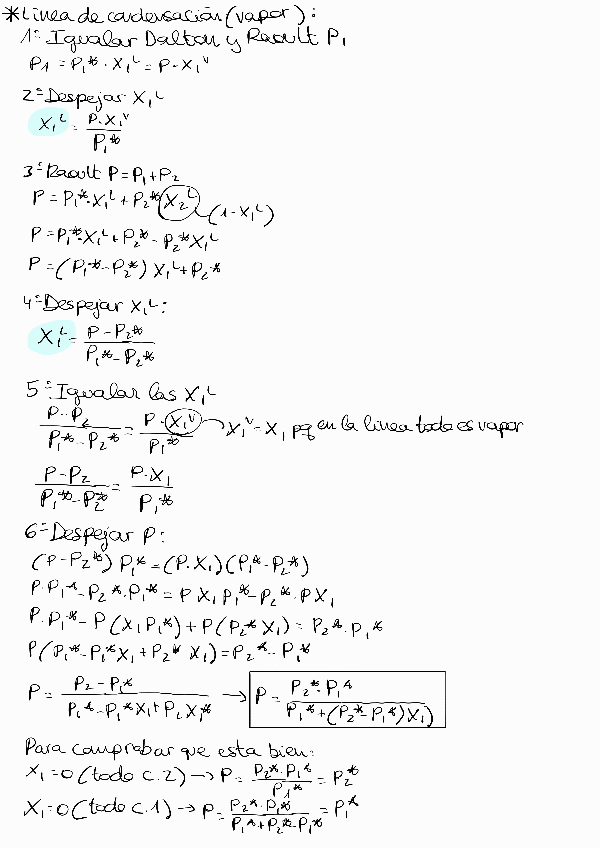 *Linea de condensación (vapor):
1º Igualar Dalton y Raoult P₁
P1 = P₁* · X₁ᴸ = P · X₁ⱽ
2º Despejar X₁ᴸ
X₁ᴸ = P · X₁ⱽ / P₁*
3º Raoult P = P₁ + P₂
P = P₁* · X₁ᴸ + P₂* X₂ᴸ (1 - X₁ᴸ)
P = P₁* · X₁ᴸ + P₂* - P₂* X₁ᴸ
P = (P₁* - P₂*) X₁ᴸ + P₂*
4º Despejar X₁ᴸ:
X₁ᴸ = P - P₂* / P₁* - P₂*
5º Igualar las X₁ᴸ
P - P₂ / P₁* - P₂* = P · X₁ⱽ / P₁* → X₁ⱽ - X₁ pq en la linea todo es vapor
P - P₂ / P₁* - P₂* = P · X₁ / P₁*
6º Despejar P:
(P - P₂*) P₁* = (P · X₁) (P₁* - P₂*)
P · P₁* - P₂* · P₁* = P X₁ P₁* - P₂* · P X₁
P · P₁* - P (X₁ P₁*) + P (P₂* X₁) = P₂* · P₁*
P (P₁* - P₁* X₁ + P₂* X₁) = P₂* · P₁*
P = P₂ - P₁* / P₁* - P₁* X₁ + P₂ X₁* → P = P₂* · P₁* / P₁* + (P₂* - P₁*) X₁)
Para comprobar que esta bien:
X₁ = 0 (todo c. 2) → P = P₂* · P₁* / P1* = P₂*
X₁ = 0 (todo c. 1) → P = P₂* · P₁* / P₁* + P₂* - P₁* = P₁*